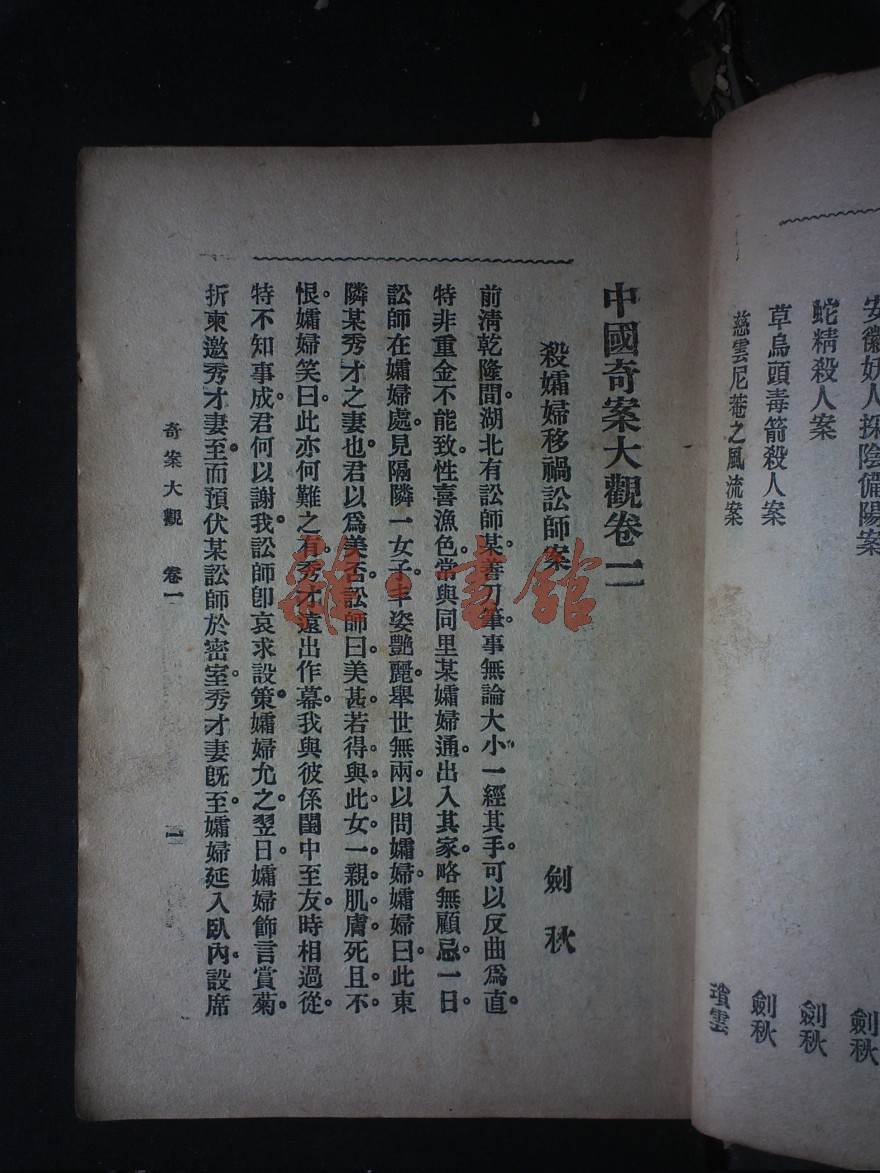 安徽妖人採陰補陽案
劍秋
蛇精殺人案
劍秋
草烏頭毒箭殺人案
劍秋
慈雲尼菴之風流案
瓆雲
中國奇案大觀卷一
殺孀婦移禍訟師案
劍秋
前清乾隆間。湖北有訟師某。善刀筆。事無論大小。一經其手。可以反曲爲直。
特非重金不能致。性喜漁色。常與同里某孀婦通。出入其家。略無顧忌。一日。
訟師在孀婦處。見隔隣一女子。丰姿艷麗。舉世無兩。以問孀婦。孀婦曰。此東
隣某秀才之妻也。君以爲美否。訟師曰。美甚。若得與此女一親肌膚。死且不
恨。孀婦笑曰。此亦何難之有。秀才遠出作幕。我與彼係閨中至友。時相過從。
特不知事成。君何以謝我。訟師卽哀求設策。孀婦允之。翌日。孀婦飾言賞菊。
折柬邀秀才妻至。而預伏某訟師於密室。秀才妻旣至。孀婦延入臥內。設席
奇案大觀 卷一
一
雜·書館